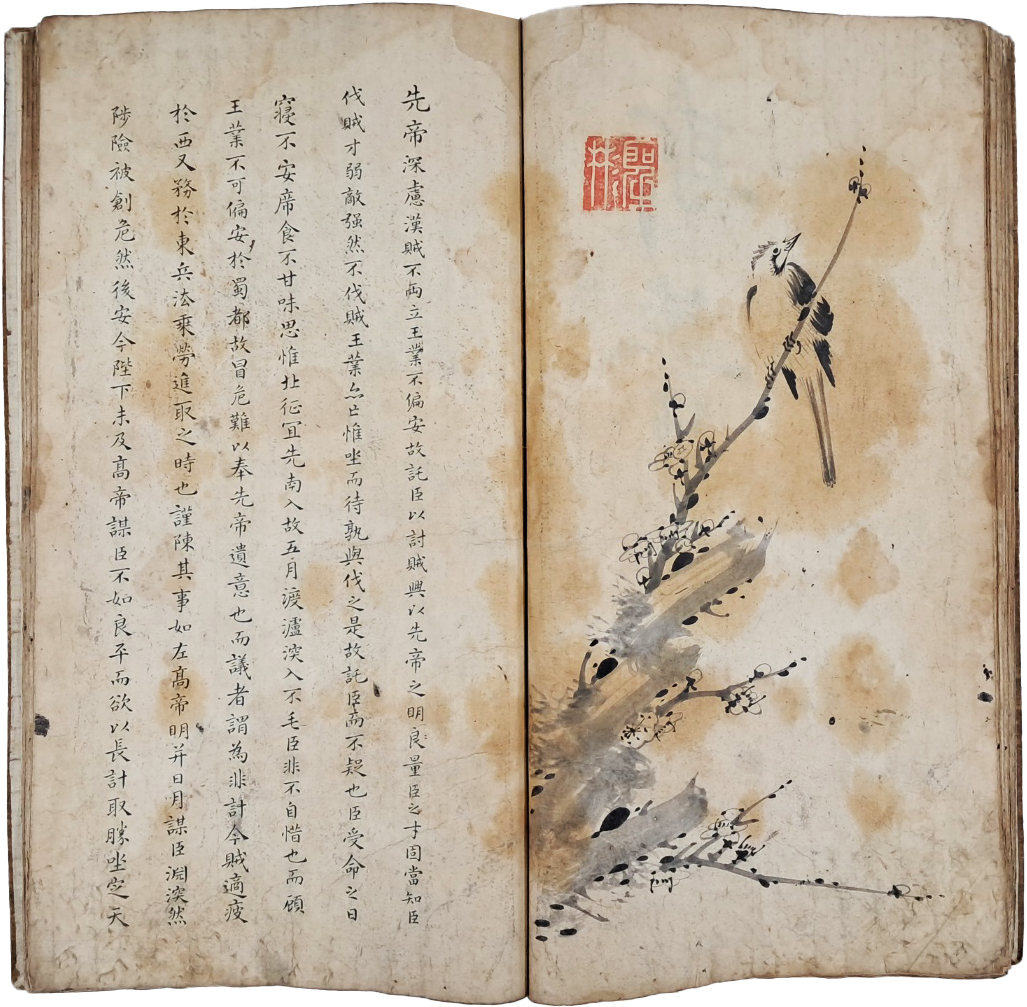 先帝深慮漢賊不両立王業不偏安故託臣以討賊興以先帝之明良量臣之才固當知臣
伐賊才弱敵强然不伐賊王業亦亡惟坐而待孰與伐之是故託臣而不疑也臣受命之日
寢不安席食不甘味思惟北征冝先南入故五月渡瀘深入不毛臣非不自惜也而顧
王業不可偏安於蜀都故冒危難以奉先帝遺意也而議者謂為非計今賊適疲
於西又務於東兵法乘勞進取之時也謹陳其事如左髙帝明并日月謀臣淵深然
陟險被創危然後安今陛下未及髙帝謀臣不如良平而欲以長計取勝坐定天